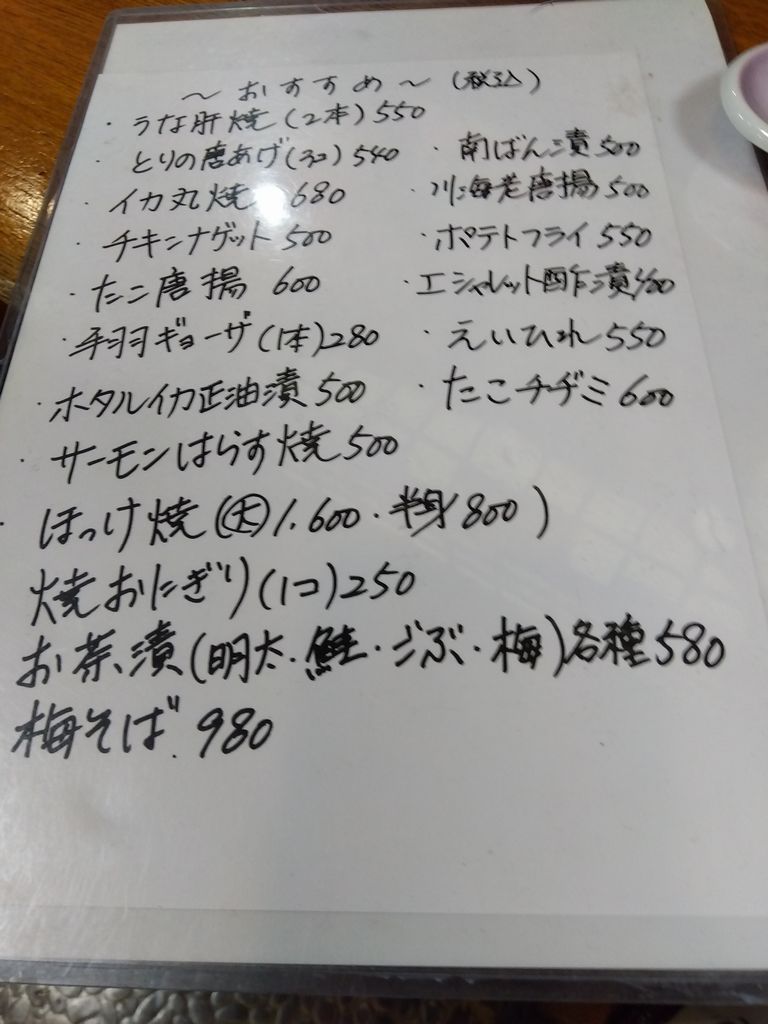 ～おすすめ～(税込)
・うな肝焼(2本)550
・とりの唐あげ(3コ)540
・イカ丸焼 680
・チキンナゲット 500
・たこ唐揚 600
・手羽ギョーザ(1本)280
・ホタルイカ正油漬 500
・サーモンはらす焼 500
・ほっけ焼(大1.600・半身800)
焼おにぎり(1コ)250
お茶漬(明太・鮭・こぶ・梅)各種580
梅そば 980
・南ばん漬 500
・川海老唐揚 500
・ポテトフライ 550
・エシャレット酢漬
・えいひれ 550
・たこチヂミ 600